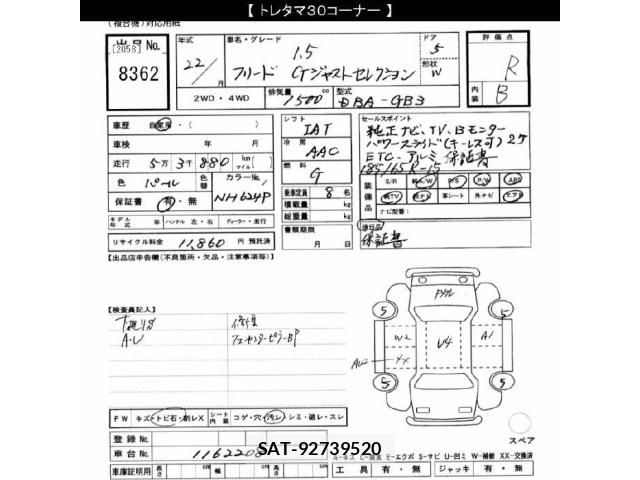 【 トレタマ３０コーナー 】
(複合機)対応用紙
出品 No.
[2058]
8362
年式
22/ 月
車名・グレード
1.5
フリード Gジャストセレクション
ドア
5
形状
W
評価点
R
内装 B
2WD・4WD
排気量
1500 cc
型式
DBA-GB3
車歴 自家用・( )
車検 年 月
走行 5万 3千 880 km (マイル)
色 パール 色替 カラーNo. NH624P
保証書 有・無
モデル年式 年 ハンドル 左・右 ディーラー・並行
リサイクル料金 11,860 円 預託済
シフト
IAT
冷房
AAC
燃料
G
乗車定員 8 名
積載量 kg
総重量 kg
書類期限
月 日
セールスポイント
純正ナビ、TV、Bモニター
パワースライド(キーレス可)2ケ
ETC、アルミ 保証書
185/65R-15
装備品
S/R A/W P/S P/W ABS
純TV 純ナビ 革シート 外ナビ エアB
ナビ型番:
後日品
保証書
【出品店申告欄(不良箇所・欠品・注意事項等)】
【検査員記入】
下廻りサ 修復
A・U
Fドル
5 5
W2 U4 A1
AU2 XX
5 5
スペア
FW キズ・トビ石・割レX シート内装 コゲ・穴・汚レ・シミ・破レ・スレ
登録 No.
車台 No. 1162208
SAT-92739520
A-キズ E-エクボ S-サビ U-凹ミ W-補修 XX-交換済
車庫証明用 長さ cm 幅 cm 高さ cm 工具 有・無 ジャッキ 有・無